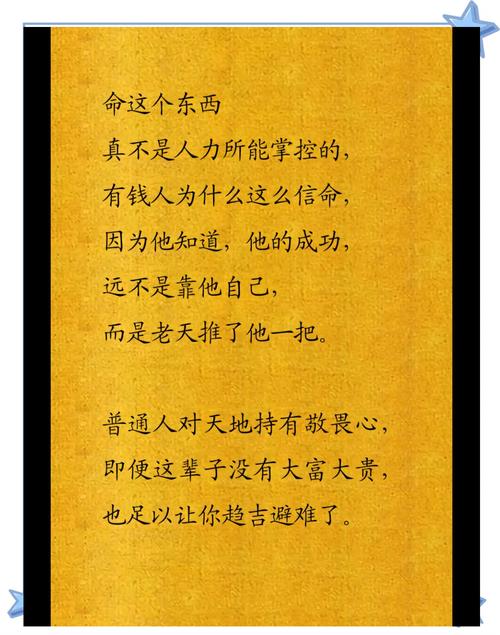 命这个东西
真不是人力所能掌控的，
有钱人为什么这么信命，
因为他知道，他的成功，
远不是靠他自己，
而是老天推了他一把。
普通人对天地持有敬畏心，
即便这辈子没有大富大贵，
也足以让你趋吉避难了。